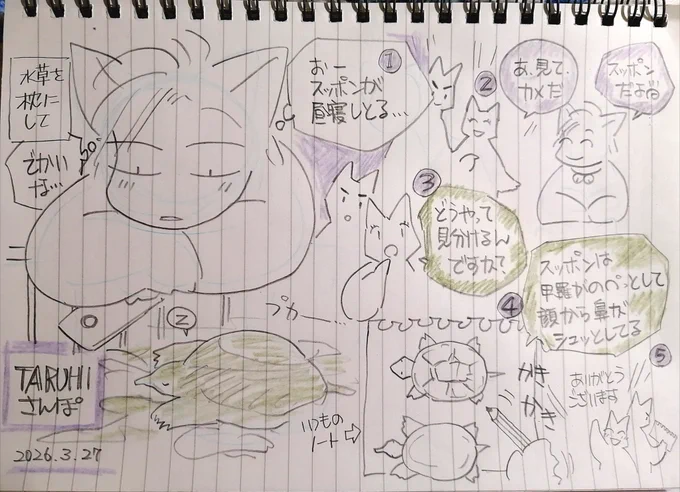 水草を
枕に
して
でかい
な…
①
おー
スッポンが
昼寝しとる…
②
あ、見て、
カメだ
スッポン
だよ
③
どうやって
見分けるん
ですか?
④
スッポンは
甲羅がのぺっとして
顔から鼻が
シュッとしてる
プカー…
Z
いつもの
ノート
かき
かき
⑤
ありがとう
ございます
TARUHI
さんぽ
2026.3.27